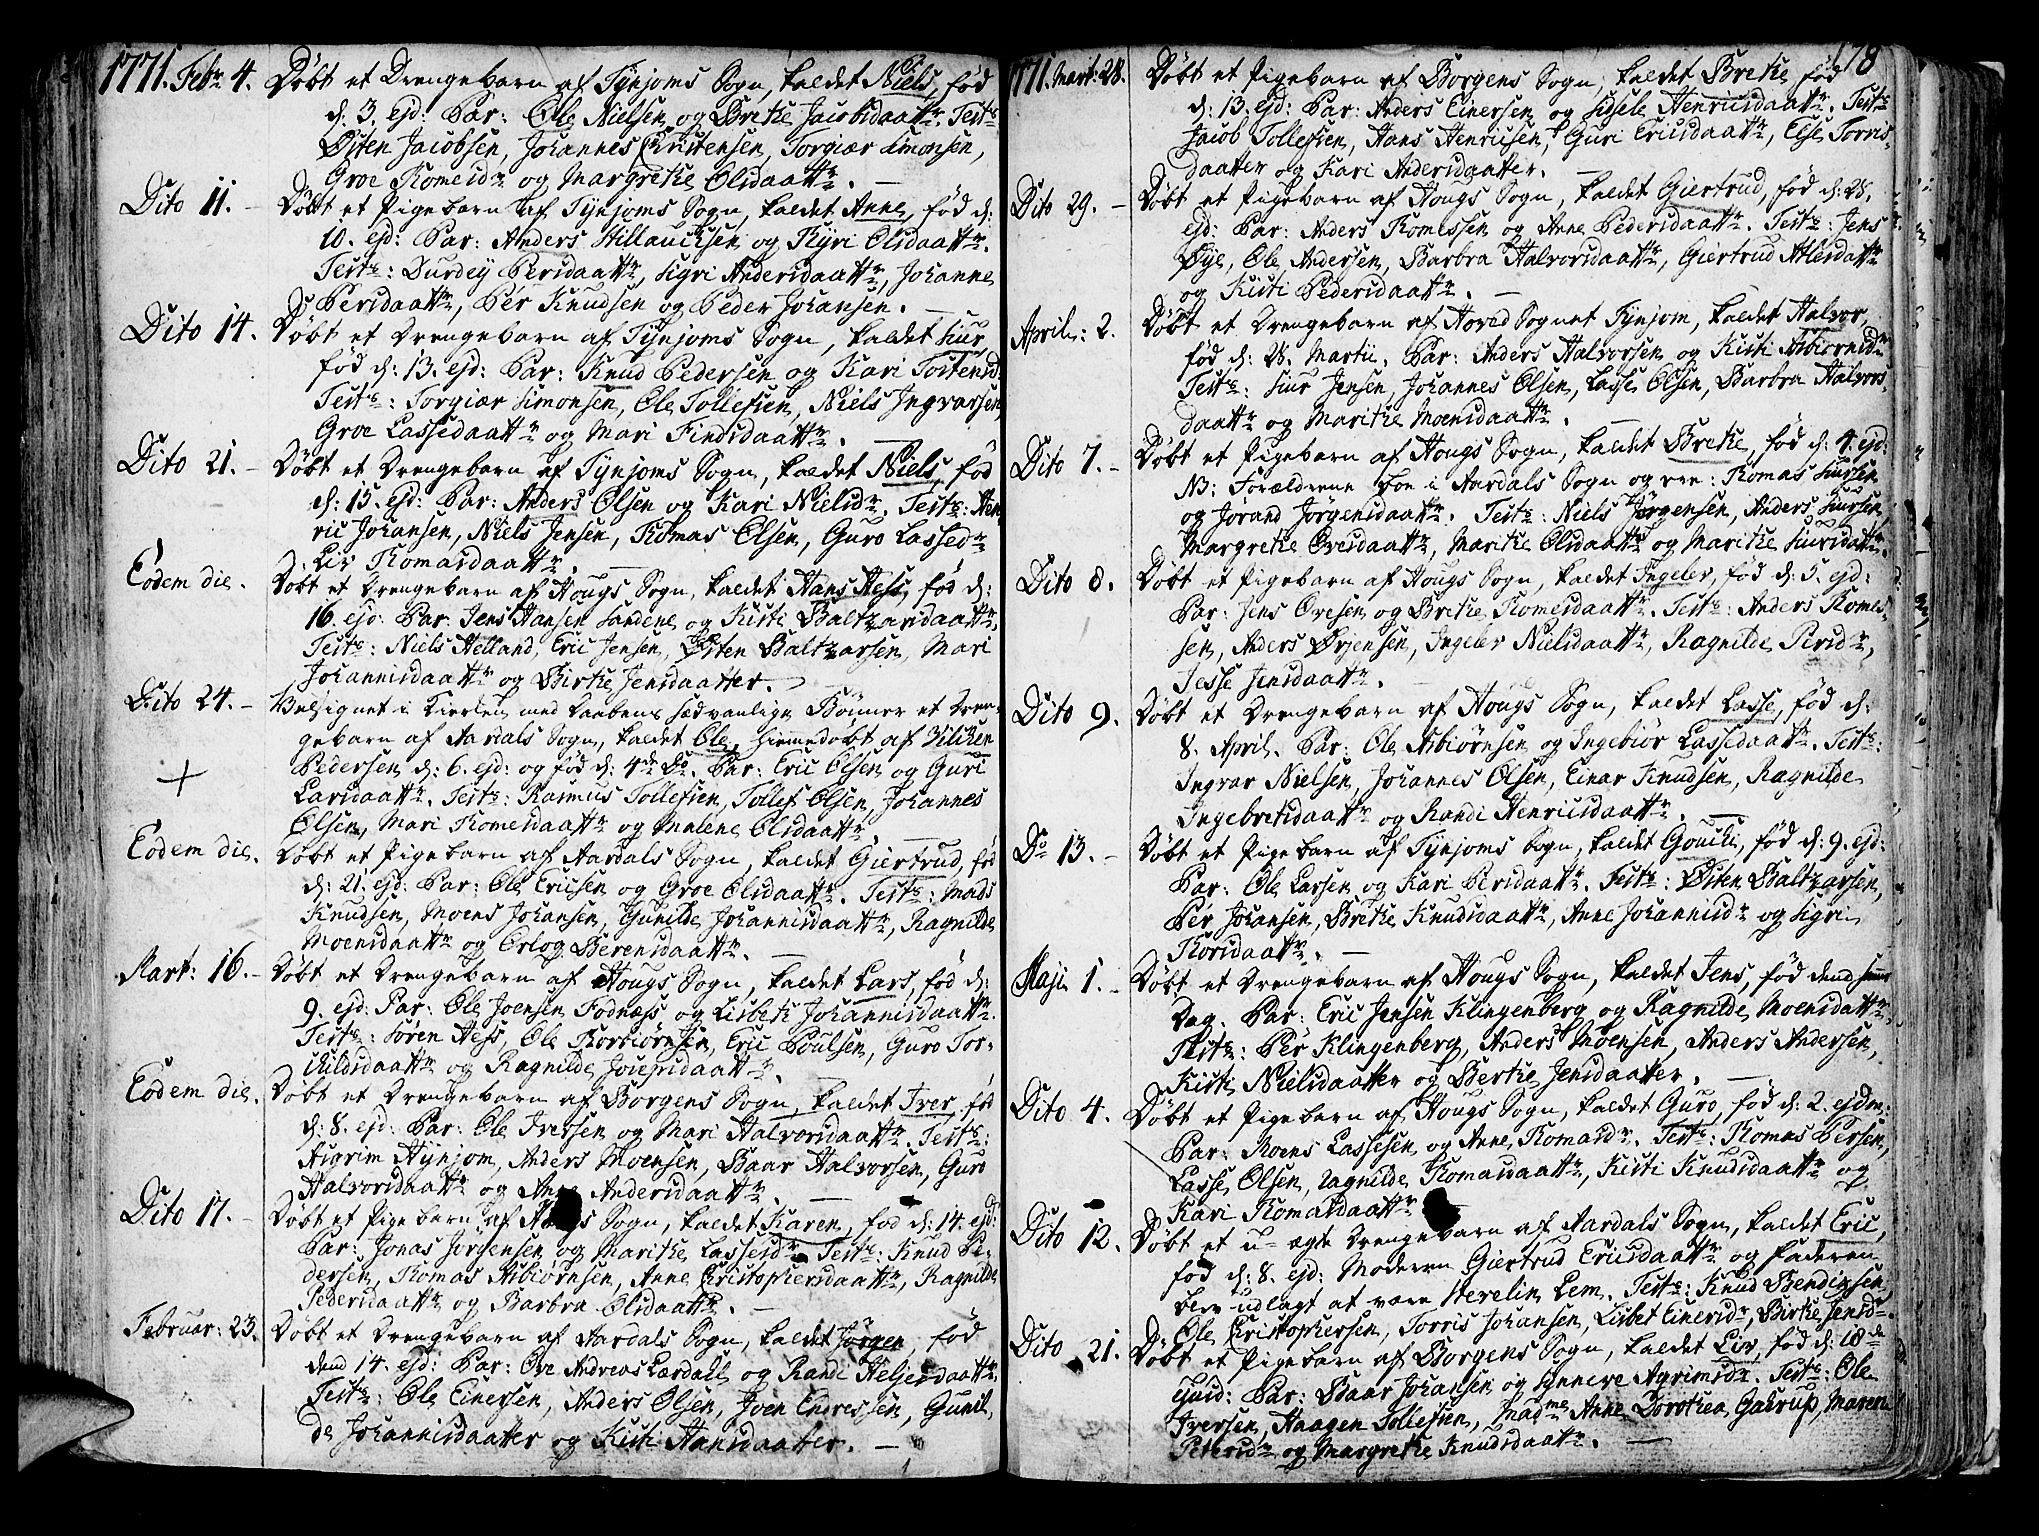 1771. Febr. 4. Döbt et Drengebarn af Tynjoms Sogn, kaldet Niels, fød
d: 3. ejd: Par: Ole Nielsen og Brethe Jacobsdaattr. Testes
Østen Jacobsen, Johannes Christensen, Torgiær Simonsen,
Groe Thomesdr og Margrethe Olsdaattr. —
Dito 11. — Döbt et Pigebarn af Tynjoms Sogn, kaldet Anne, fød d:
10. ejd: Par: Anders Willaucksen og Kyri Olsdaattr.
Testes: Durdey Persdaattr, Sigri Andersdaattr, Johanne
Persdaattr, Pér Knudsen og Peder Johansen. —
Dito 14. Döbt et Drengebarn af Tynjoms Sogn, kaldet Siur,
fød d: 13. ejd: Par: Knud Pedersen og Kari Tostensd.
Testes: Torgiær Simonsen, Ole Tollefsen, Niels Ingvarsen
Groe Lassedaattr og Mari Findsdaattr. —
Dito 21. — Döbt et Drengebarn af Tynjoms Sogn, kaldet Niels, fød
d: 15. ejd: Par: Anders Olsen og Kari Nielsdr. Testes: Hen-
ric Johansen, Niels Jensen, Thomas Olsen, Guro Lassedr
Liv Thomasdaattr. —
Eodem die. Döbt et Drengebarn af Hougs Sogn, kaldet Hans Hess, fød d:
16. ejd: Par: Jens Hansen Sandene og Kisti Baltzarsdaattr,
Testes: Niels Helland, Eric Jensen, Østen Baltzarsen, Mari
Johannisdaattr og Birthe Jensdaatter. —
Dito 24. — Velsignet i Kierken med Daabens sædvanlige Bønner et Dren-
gebarn af Aardals Sogn, kaldet Ole, hiemmedøbt af Vilchen
+ Pedersen d: 6. ejd: og fød d: 4de Do. Par: Eric Olsen og Guri
Larsdaattr. Testes: Rasmus Tollefsen, Tollef Olsen, Johannes
Olsen, Mari Thomesdaattr og Malene Olsdaattr. —
Eodem die. Döbt et Pigebarn af Aardals Sogn, kaldet Giertrud, fød
d: 21. ejd: Par: Ole Ericsen og Groe Olsdaattr. Testes: Mads
Knudsen, Moens Johansen, Gunilde Johannisdaattr, Ragnilde
Moensdaattr og Orlog Berensdaattr. —
Mart: 16. — Döbt et Drengebarn af Hougs Sogn, kaldet Lars, fød d:
9. ejd: Par: Ole Joensen Fodnæss og Lisbeth Johannisdaattr.
Testes: Søren Hess, Ole Thorbiørnsen, Eric Poulsen, Guro Tor-
kildsdaattr og Ragnilde Josepsdaattr. —
Eodem die. Döbt et Drengebarn af Borgens Sogn, kaldet Iver, fød
d: 8. ejd: Par: Ole Iversen og Mari Halvorsdaattr. Testes:
Asgrim Hynjom, Anders Moensen, Baar Halvorsen, Guro
Halvorsdaattr og Anne Andersdaattr. —
Dito 17. — Döbt et Pigebarn af Hougs Sogn, kaldet Karen, fød d: 14. ejd:
Par: Jonas Jørgensen og Marithe Lassesdr. Testes: Knud Pe-
dersen, Thomas Asbiørnsen, Anne Christophersdaattr, Ragnilde
Pedersdaattr og Barbra Olsdaattr. —
Februar: 23. Döbt et Drengebarn af Aardals Sogn, kaldet Jørgen, fød
dend 14. ejd: Par: Ove Andreas Lærdall og Randi Heljesdaattr.
Testes: Ole Einersen, Anders Olsen, Joen Endresen, Gunil-
de Johannisdaatter og Kisti Hansdaatter. —
178
1771. Mart: 28. Döbt et Pigebarn af Borgens Sogn, kaldet Brethe, fød
d: 13. ejd: Par: Anders Einersen og Sidsele Henricsdaattr. Testes
Jacob Tollefsen, Hans Henricsen, Guri Ericsdaattr, Else Torris-
daatter og Kari Andersdaatter. —
Dito 29. — Döbt et Pigebarn af Hougs Sogn, kaldet Giertrud, fød d: 28.
ejd: Par: Anders Thomessen og Anne Pedersdaattr. Testes: Jens
Øye, Ole Andersen, Barbra Halvorsdaattr, Giertrud Atlesdattr
og Kisti Pedersdaattr. —
April: 2. Döbt et Drengebarn af Hoved Sognet Tynjom, kaldet Halvor,
fød d: 28. Martii. Par: Anders Halvorsen og Kisti Asbiørnsdr
Testes: Siur Jensen, Johannes Olsen, Lasse Olsen, Barbra Halvors
daattr og Marithe Moensdaattr. —
Dito 7. — Döbt et Pigebarn af Hougs Sogn, kaldet Brethe, fød d: 4. ejd:
NB: Forældrene boe i Aardals Sogn og ere: Thomas Siursen
og Jorand Jørgensdaattr. Testes: Niels Jørgensen, Anders Siursen,
Margrethe Ovesdaattr, Marithe Olsdaattr og Marithe Siursdattr.
Dito 8. Döbt et Pigebarn af Hougs Sogn, kaldet Ingelev, fød d: 5. ejd:
Par: Jens Ovesen og Brethe Thomesdaattr. Testes: Anders Thomes-
sen, Anders Ørjensen, Ingelev Nielsdaattr, Ragnilde Persdr,
Jesse Jensdaattr. —
Dito 9. Döbt et Drengebarn af Hougs Sogn, kaldet Lasse, fød d:
8. April. Par: Ole Asbiørnsen og Ingebior Lassedaattr. Testes:
Ingvar Nielsen, Johannes Olsen, Einar Knudsen, Ragnilde
Ingebretsdaattr og Randi Henricsdaattr. —
Do 13. — Döbt et Pigebarn af Tynjoms Sogn, kaldet Gouchi, fød d: 9. ejd:
Par: Ole Larsen og Kari Persdaattr. Testes: Østen Baltzarsen,
Pér Johansen, Brethe Knudsdaattr, Anne Johannisdr og Sigri
Thorsdaattr. —
Maji 1. — Döbt et Drengebarn af Hougs Sogn, kaldet Jens, fød dend samme
Dag. Par: Eric Jensen Klingenberg og Ragnilde Moensdattr.
Testes: Pér Klingenberg, Anders Moensen, Anders Andersen,
Kisti Nielsdaatter og Berthe Jensdaatter. —
Dito 4. Döbt et Pigebarn af Hougs Sogn, kaldet Guro, fød d: 2. ejdm:
Par: Moens Lassesen og Anne Thomasdr. Testes: Thomas Persen,
Lasse Olsen, Ragnilde Thomasdaattr, Kisti Knudsdaattr og
Kari Thomasdaattr
Dito 12. Döbt et u-ægte Drengebarn af Aardals Sogn, kaldet Eric,
fød d: 8. ejd: Moderen Giertrud Ericsdaattr og Faderen
blev udlagt at være Herelin Lem. Testes: Knud Bendixsen
Ole Christophersen, Torris Johansen, Lisbet Einersdr, Birthe Jensdr.
Dito 21. Döbt et Pigebarn af Borgens Sogn, kaldet Liv, fød d: 18de
Ejusd: Par: Baar Johansen og Synneve Agrimsdr. Testes: Ole
Iversen, Haagen Tollefsen, Madme Anne Dorothea Gakrup, Maren
Petersdr og Margrethe Knudsdaattr. —